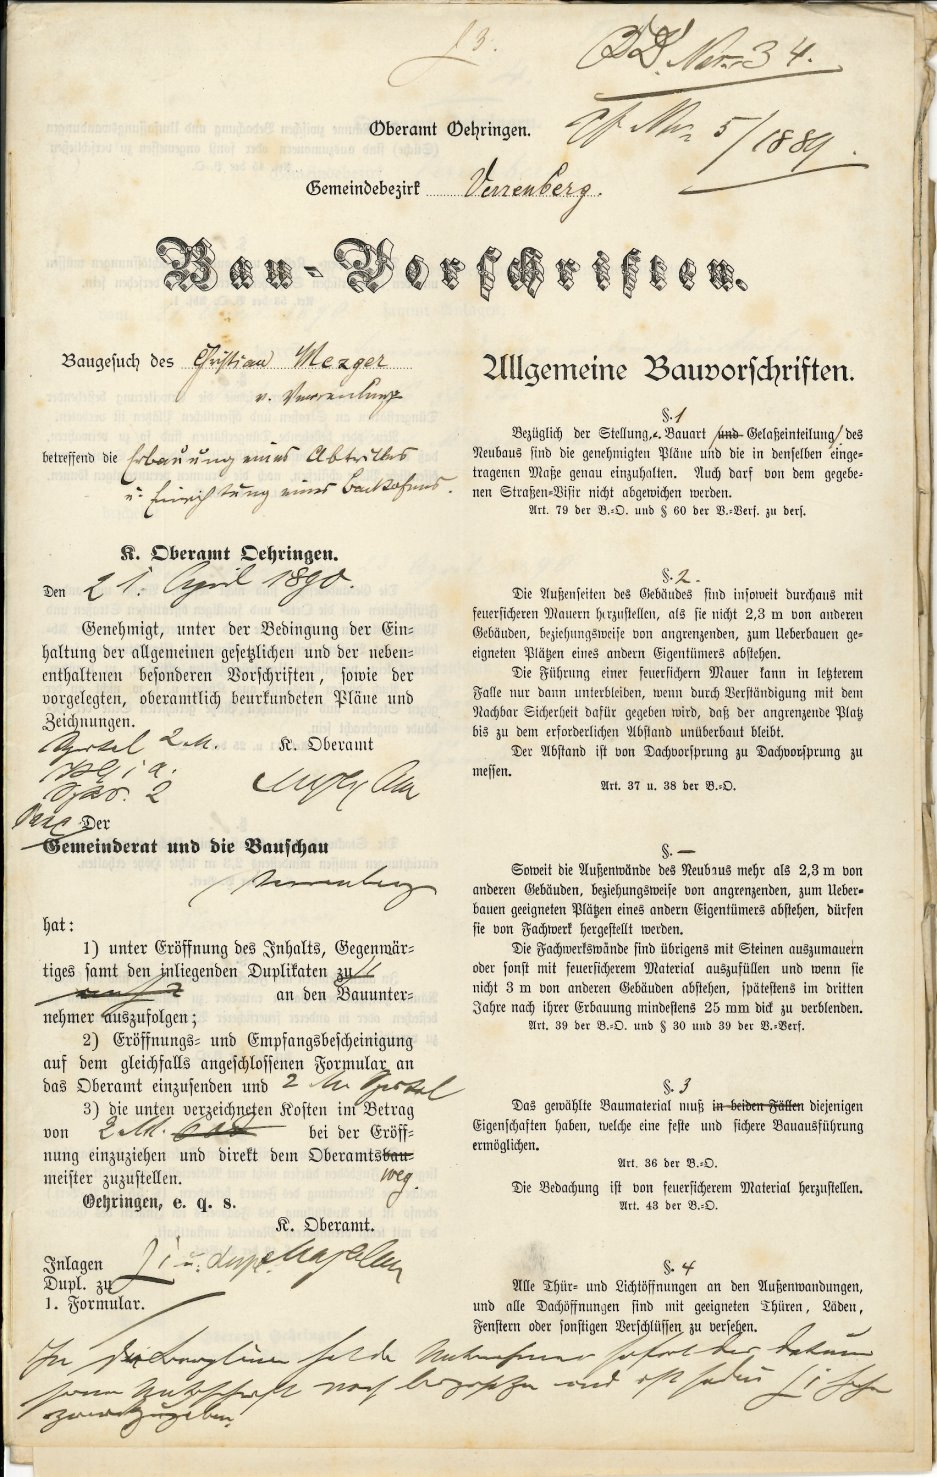 § 3.
Nro. 34.
Nro 5/1889.
Oberamt Oehringen.
Gemeindebezirk Verrenberg.
Bau-Vorschriften.
Baugesuch des Christian Mezger
v. Verrenberg
betreffend die Erbauung eines Abtrittes
u. Einrichtung eines Backofens.
K. Oberamt Oehringen.
Den 21. April 1890.
Genehmigt, unter der Bedingung der Ein=
haltung der allgemeinen gesetzlichen und der neben=
enthaltenen besonderen Vorschriften, sowie der
vorgelegten, oberamtlich beurkundeten Pläne und
Zeichnungen.
Sportel 2 M.
K. Oberamt
Der
Gemeinderat und die Bauschau
Verrenberg
hat:
1) unter Eröffnung des Inhalts, Gegenwär=
tiges samt den inliegenden Duplikaten zu
an den Bauunter=
nehmer auszufolgen;
2) Eröffnungs= und Empfangsbescheinigung
auf dem gleichfalls angeschlossenen Formular an
das Oberamt einzusenden und 2 M. Sportel
3) die unten verzeichneten Kosten im Betrag
von 2 M. bei der Eröff=
nung einzuziehen und direkt dem Oberamtsbau=
meister zuzustellen. weg.
Oehringen, e. q. s.
K. Oberamt.
Inlagen
Dupl. zu
1. Formular.
Allgemeine Bauvorschriften.
§. 1
Bezüglich der Stellung, Bauart und Gelaßeinteilung des
Neubaus sind die genehmigten Pläne und die in denselben einge=
tragenen Maße genau einzuhalten. Auch darf von dem gegebe=
nen Straßen=Visir nicht abgewichen werden.
Art. 79 der B.=O. und § 60 der V.=Verf. zu ders.
§. 2.
Die Außenseiten des Gebäudes sind insoweit durchaus mit
feuersicheren Mauern herzustellen, als sie nicht 2,3 m von anderen
Gebäuden, beziehungsweise von angrenzenden, zum Ueberbauen ge=
eigneten Plätzen eines andern Eigentümers abstehen.
Die Führung einer feuersichern Mauer kann in letzterem
Falle nur dann unterbleiben, wenn durch Verständigung mit dem
Nachbar Sicherheit dafür gegeben wird, daß der angrenzende Platz
bis zu dem erforderlichen Abstand unüberbaut bleibt.
Der Abstand ist von Dachvorsprung zu Dachvorsprung zu
messen.
Art. 37 u. 38 der B.=O.
§. —
Soweit die Außenwände des Neubaus mehr als 2,3 m von
anderen Gebäuden, beziehungsweise von angrenzenden, zum Ueber=
bauen geeigneten Plätzen eines andern Eigentümers abstehen, dürfen
sie von Fachwerk hergestellt werden.
Die Fachwerkswände sind übrigens mit Steinen auszumauern
oder sonst mit feuersicherem Material auszufüllen und wenn sie
nicht 3 m von anderen Gebäuden abstehen, spätestens im dritten
Jahre nach ihrer Erbauung mindestens 25 mm dick zu verblenden.
Art. 39 der B.=O. und § 30 und 39 der V.=Verf.
§. 3
Das gewählte Baumaterial muß in beiden Fällen diejenigen
Eigenschaften haben, welche eine feste und sichere Bauausführung
ermöglichen.
Art. 36 der B.=O.
Die Bedachung ist von feuersicherem Material herzustellen.
Art. 43 der B.=O.
§. 4
Alle Thür= und Lichtöffnungen an den Außenwandungen,
und alle Dachöffnungen sind mit geeigneten Thüren, Läden,
Fenstern oder sonstigen Verschlüssen zu versehen.